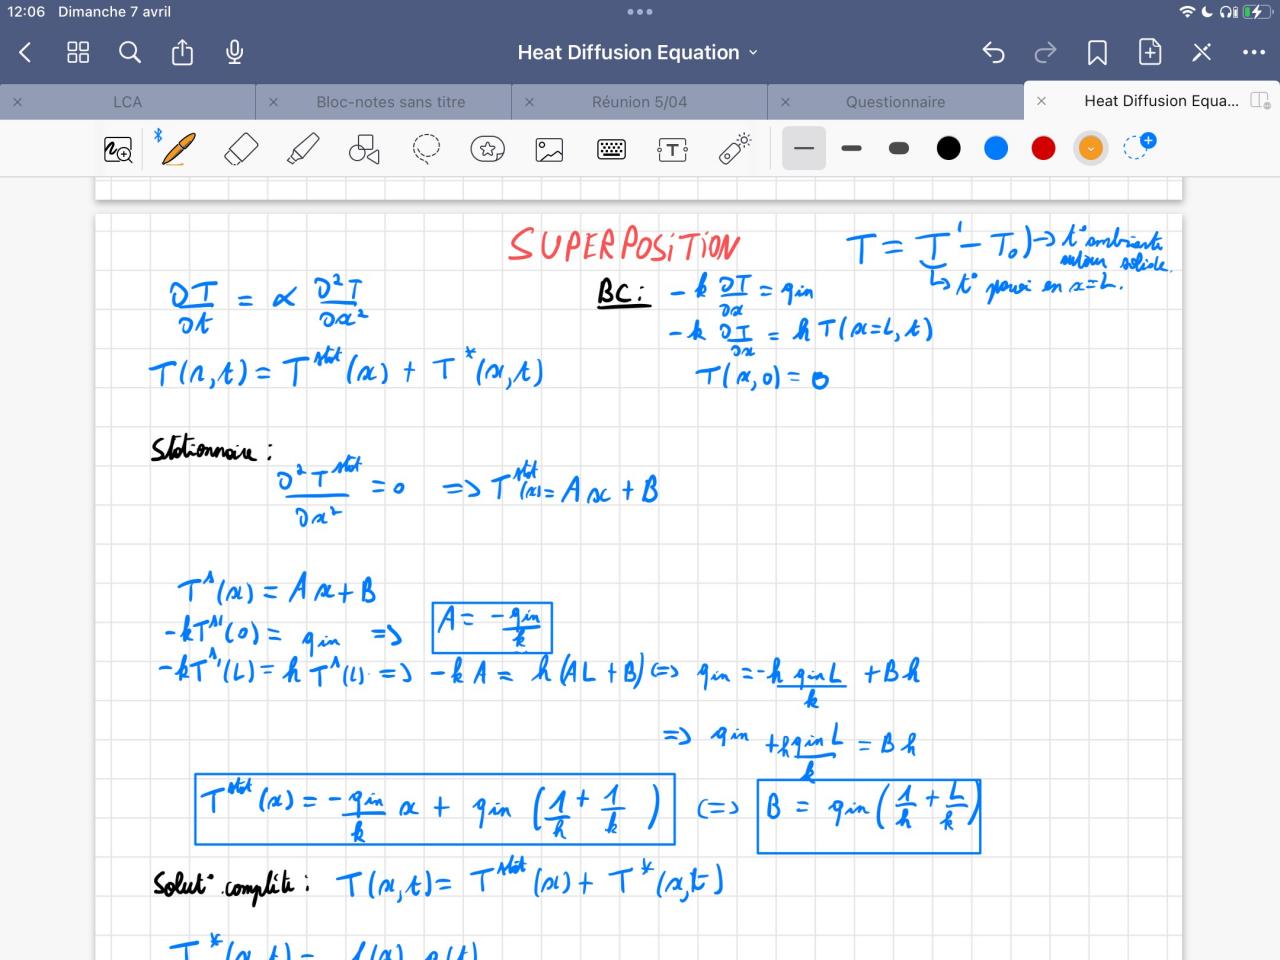 12:06 Dimanche 7 avril
Heat Diffusion Equation
LCA
Bloc-notes sans titre
Réunion 5/04
Questionnaire
Heat Diffusion Equa...
SUPERPOSITION
T = T' - T₀) → t° ambiante
autour solide.
↳ t° paroi en x=L.
∂T/∂t = α ∂²T/∂x²
BC: -k ∂T/∂x = qin
-k ∂T/∂x = h T(x=L,t)
T(x,0) = 0
T(x,t) = T^stat(x) + T*(x,t)
Stationnaire :
∂²T^stat/∂x² = 0 => T^stat(x) = Ax + B
T^s(x) = Ax + B
-kT^s'(0) = qin => A = -qin/k
-kT^s'(L) = h T^s(L) => -kA = h(AL + B) <=> qin = -h qinL/k + Bh
=> qin + hqinL/k = Bh
T^stat(x) = -qin/k x + qin (1/h + 1/k) <=> B = qin(1/h + L/k)
Solut° complète : T(x,t) = T^stat(x) + T*(x,t)